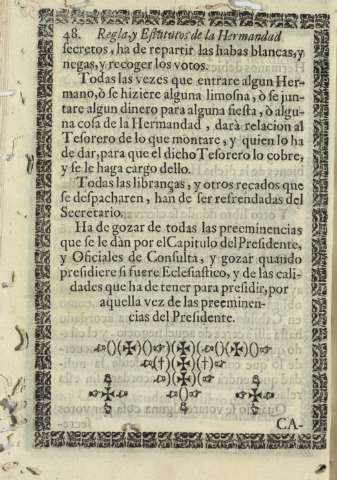 48. Regla, y Estatutos de la Hermandad
secretos, ha de repartir las habas blancas, y
negas, y recoger los votos.
Todas las vezes que entrare algun Her-
mano, ò se hiziere alguna limosna, ò se jun-
tare algun dinero para alguna fiesta, ò algu-
na cosa de la Hermandad, darà relacion al
Tesorero de lo que montare, y quien lo ha
de dar, para que el dicho Tesorero lo cobre,
y se le haga cargo dello.
Todas las libranças, y otros recados que
se despacharen, han de ser refrendadas del
Secretario.
Ha de gozar de todas las preeminencias
que se le dan por el Capitulo del Presidente,
y Oficiales de Consulta, y gozar quando
presidiere si fuere Eclesiastico, y de las cali-
dades que ha de tener para presidir, por
aquella vez de las preeminen-
cias del Presidente.
CA-